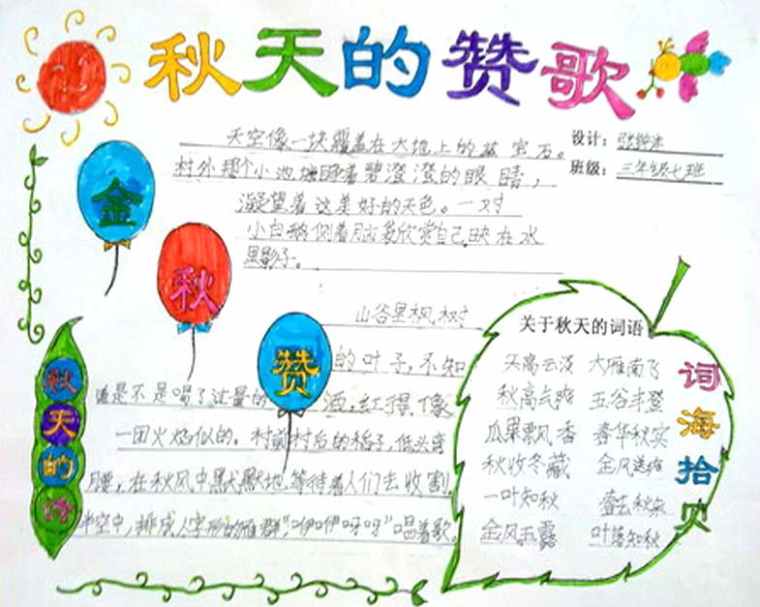 秋天的赞歌
天空像一块覆盖在大地上的蓝宝石。
设计：
村外那个小池塘睁着碧澄澄的眼睛，
班级：三年级七班
凝望着这美好的天色。一对
小白鹅侧着脑袋欣赏自己映在水
里影子。
金
秋
赞
山谷里枫树
的叶子，不知
道是不是喝了过量的酒，红得像
一团火焰似的。村前村后的稻子，低头弯
腰，在秋风中默默地等待着人们去收割
半空中，排成人字形的雁群，“咿咿呀呀”唱着歌。
秋天的诗
关于秋天的词语
天高云淡 大雁南飞
秋高气爽 五谷丰登
瓜果飘香 春华秋实
秋收冬藏 金风送爽
一叶知秋 秋
金风玉露 叶落知秋
词海拾贝